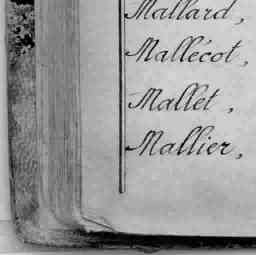 Mallard,
Mallécot,
Mallet,
Mallier,